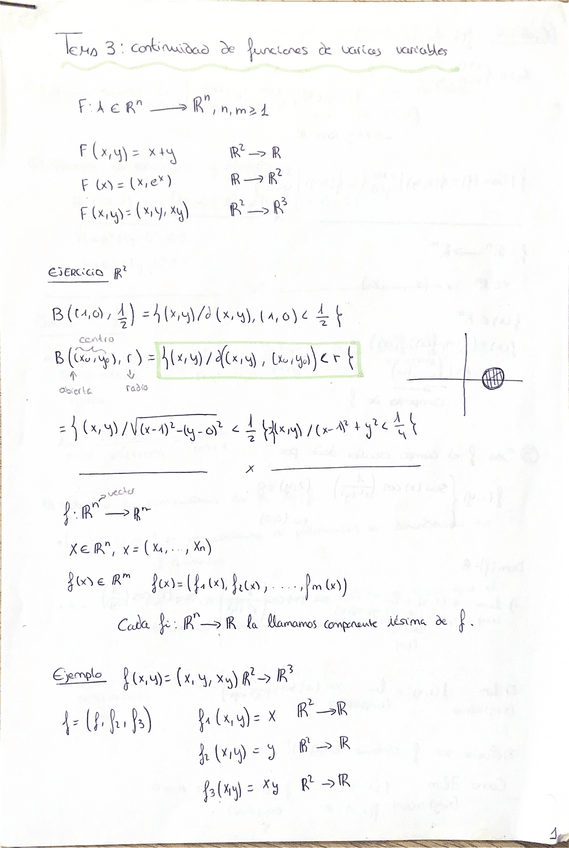 Tema 3: continuidad de funciones de varias variables
F: A ∈ ℝⁿ ⟶ ℝⁿ, n, m ≥ 1
F(x,y) = x+y ℝ² → ℝ
F(x) = (x, eˣ) ℝ → ℝ²
F(x,y) = (x, y, xy) ℝ² → ℝ³
EJERCICIO ℝ²
B((1,0), 1/2) = {(x,y) / d(x,y), (1,0) < 1/2}
centro
B((x₀,y₀), r) = {(x,y) / d((x,y), (x₀,y₀)) < r}
abierta radio
= {(x,y) / √(x-1)²-(y-0)² < 1/2} = {(x,y) / (x-1)² + y² < 1/4}
x
vector
f: ℝⁿ ⟶ ℝᵐ
x ∈ ℝⁿ, x = (x₁, ..., xₙ)
f(x) ∈ ℝᵐ f(x) = (f₁(x), f₂(x), ....., fm(x))
Cada fi: ℝⁿ → ℝ la llamamos componente iésima de f.
Ejemplo f(x,y) = (x, y, xy) ℝ² → ℝ³
f = (f, f₂, f₃) f₁(x,y) = x ℝ² → ℝ
f₂(x,y) = y ℝ² → ℝ
f₃(x,y) = xy ℝ² → ℝ
1